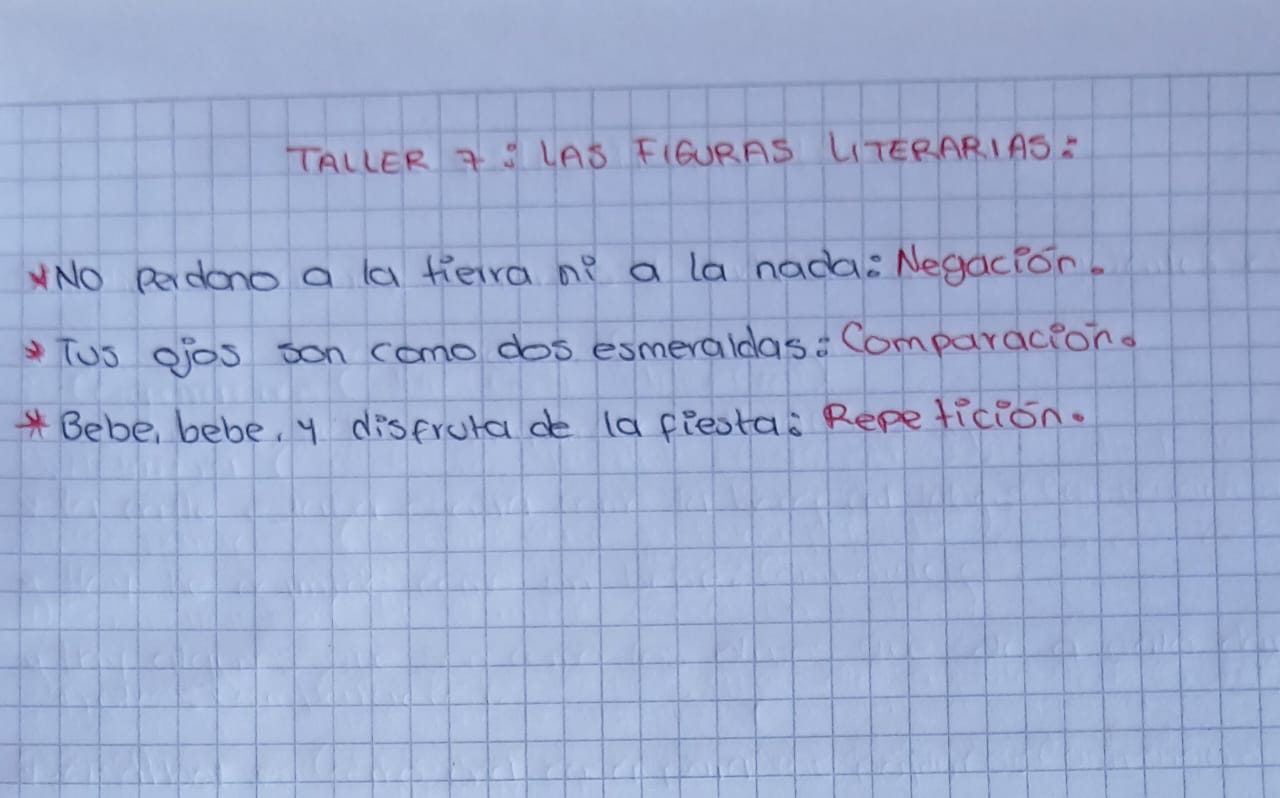 TALLER 7: LAS FIGURAS LITERARIAS:
*No perdono a la tierra ni a la nada: Negación.
*Tus ojos son como dos esmeraldas: Comparación.
*Bebe, bebe, y disfruta de la fiesta: Repetición.